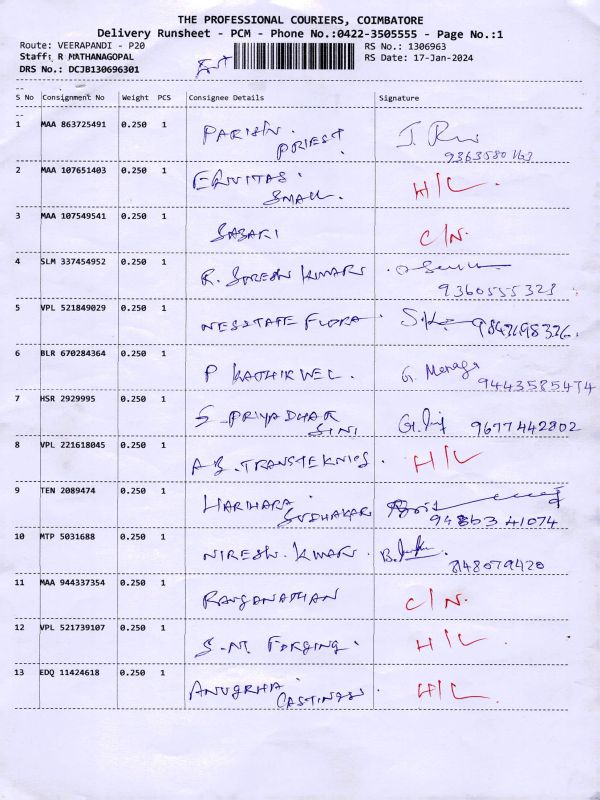 THE PROFESSIONAL COURIERS, COIMBATORE
Delivery Runsheet - PCM - Phone No.:0422-3505555 - Page No.:1
Route: VEERAPANDI - P20 RS No.: 1306963
Staff: R MATHANAGOPAL RS Date: 17-Jan-2024
DRS No.: DCJB130696301
S No Consignment No Weight PCS Consignee Details Signature
1 MAA 863725491 0.250 1 PARISH PRIEST J. R
2 MAA 107651403 0.250 1 SMALL. H/L
3 MAA 107549541 0.250 1 SABARI C/N.
4 SLM 337454952 0.250 1 R. SURESH KUMAR
9360555323
5 VPL 521849029 0.250 1 FLORA
6 BLR 670284364 0.250 1 P KATHIKVEL. G.
9443585474
7 HSR 2929995 0.250 1 S. PRIYADHAR SINI 9677442802
8 VPL 221618045 0.250 1 A.B. TRANSTEKNIOS. H/L
9 TEN 2089474 0.250 1 HARIHARA SUDHAKAR
94863 41074
10 MTP 5031688 0.250 1 NIRESH. KUMAR.
8148079420
11 MAA 944337354 0.250 1 RANGANATHAN C/N.
12 VPL 521739107 0.250 1 S.M. FORGING. H/L
13 EDQ 11424618 0.250 1 ANUGRHA CASTINGS H/L